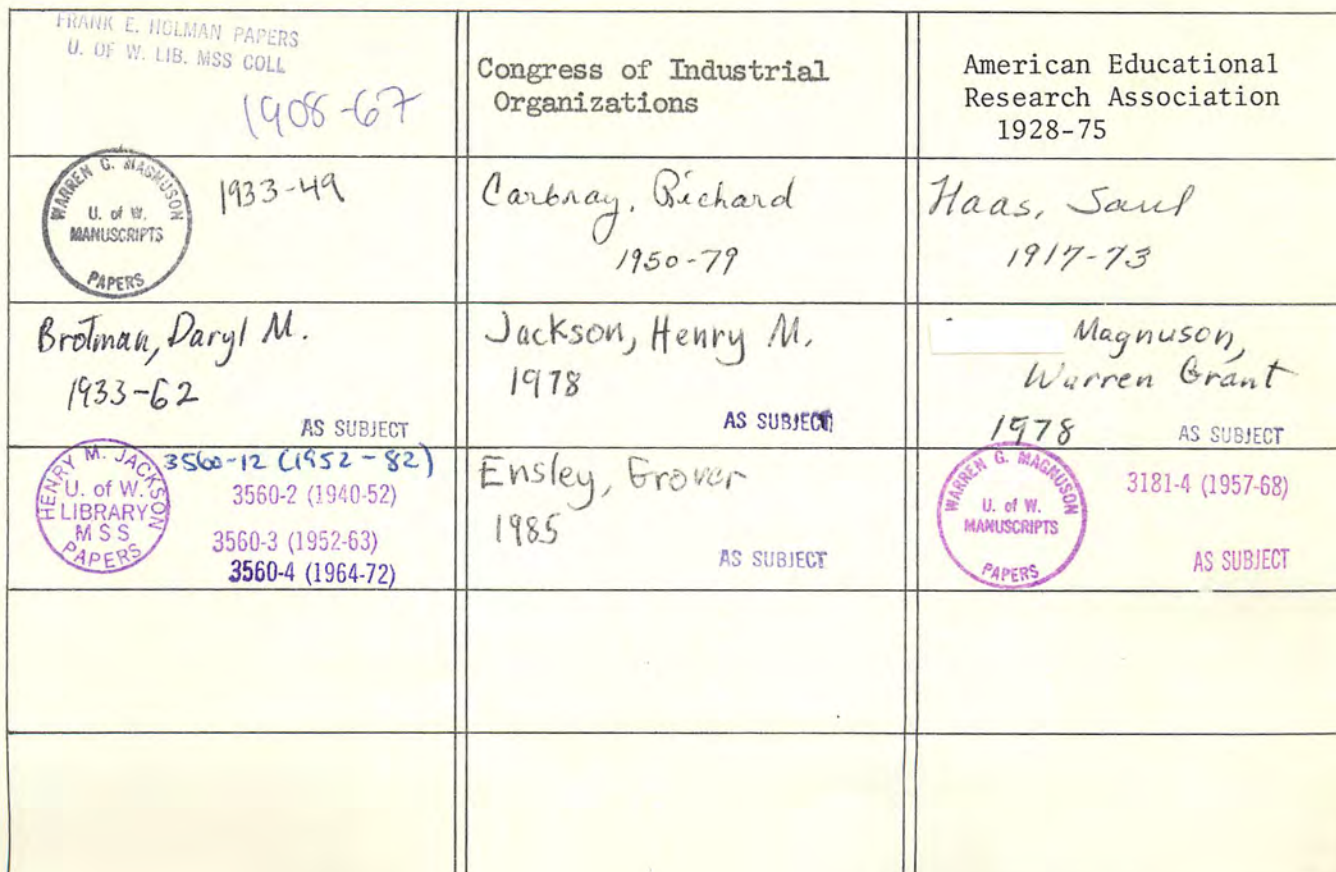 FRANK E. HOLMAN PAPERS
U. OF W. LIB. MSS COLL
1908-67
Congress of Industrial
Organizations
American Educational
Research Association
1928-75
WARREN G. MAGNUSON
U. of W.
MANUSCRIPTS
PAPERS
1933-49
Carbray, Richard
1950-79
Haas, Saul
1917-73
Brotman, Daryl M.
1933-62
AS SUBJECT
Jackson, Henry M.
1978
AS SUBJECT
Magnuson,
Warren Grant
1978 AS SUBJECT
HENRY M. JACKSON
U. of W.
LIBRARY
MSS
PAPERS
3560-12 (1952-82)
3560-2 (1940-52)
3560-3 (1952-63)
3560-4 (1964-72)
Ensley, Grover
1985
AS SUBJECT
WARREN G. MAGNUSON
U. of W.
MANUSCRIPTS
PAPERS
3181-4 (1957-68)
AS SUBJECT